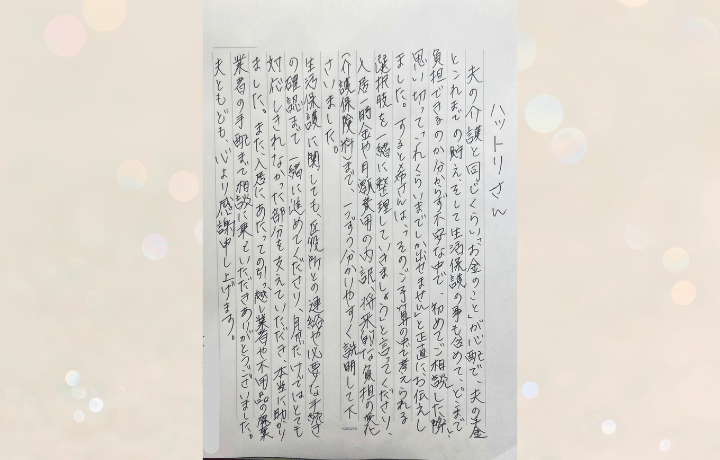 ハットリさん
夫の介護と同じくらい「お金のこと」が心配で、夫の年金
とこれまでの貯えそして生活保護の事も含めて、どこまで
負担できるのか分からず不安な中で、初めてご相談した際、
思い切って「これくらいまでしか出せません」と正直にお伝えし
ました。するとさんは、「そのご予算の中で考えられる
選択肢を一緒に整理していきましょう」と言ってくださり、
入居一時金や月額費用の内訳、将来的な負担の変化
(介護保険料)まで、一つずつ分かりやすく説明して下
さいました。
生活保護に関しても、区役所との連絡や必要な手続き
の確認まで一緒に進めてくださり、自分だけではとても
対応しきれなかった部分を支えていただき、本当に助かり
ました。また、入居にあたっての引っ越し業者や不用品の廃棄
業者の手配まで相談に乗っていただきありがとうございました。
夫ともども、心より感謝申し上げます。